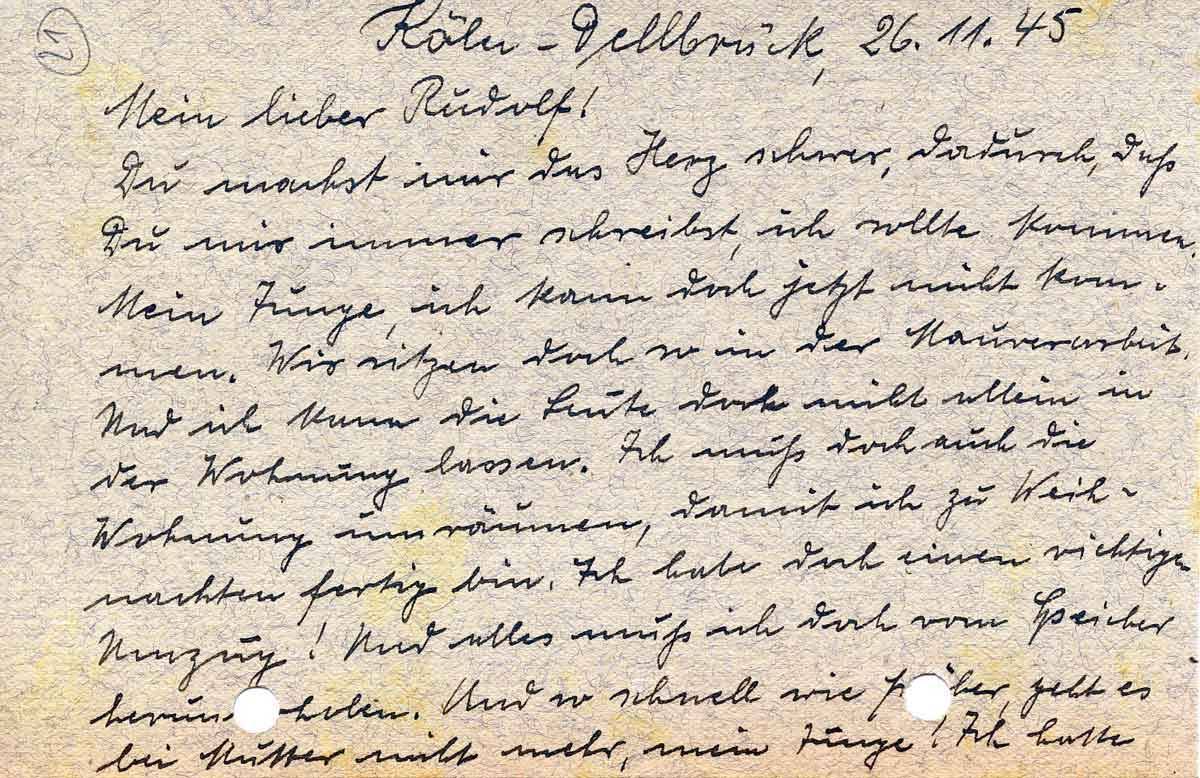 21
Köln-Dellbrück, 26.11.45
Mein lieber Rudolf!
Du machst mir das Herz schwer, dadurch, daß
Du mir immer schreibst, ich sollte kommen.
Mein Junge, ich kann doch jetzt nicht kom-
men. Wir sitzen doch so in der Maurerarbeit.
Und ich kann die Leute doch nicht allein in
der Wohnung lassen. Ich muß doch auch die
Wohnung umräumen, damit ich zu Weih-
nachten fertig bin. Ich habe doch einen richtigen
Umzug! Und alles muß ich doch vom Speicher
holen. Und so schnell wie geht es
bei Mutter nicht mehr, mein Junge! Ich hatte